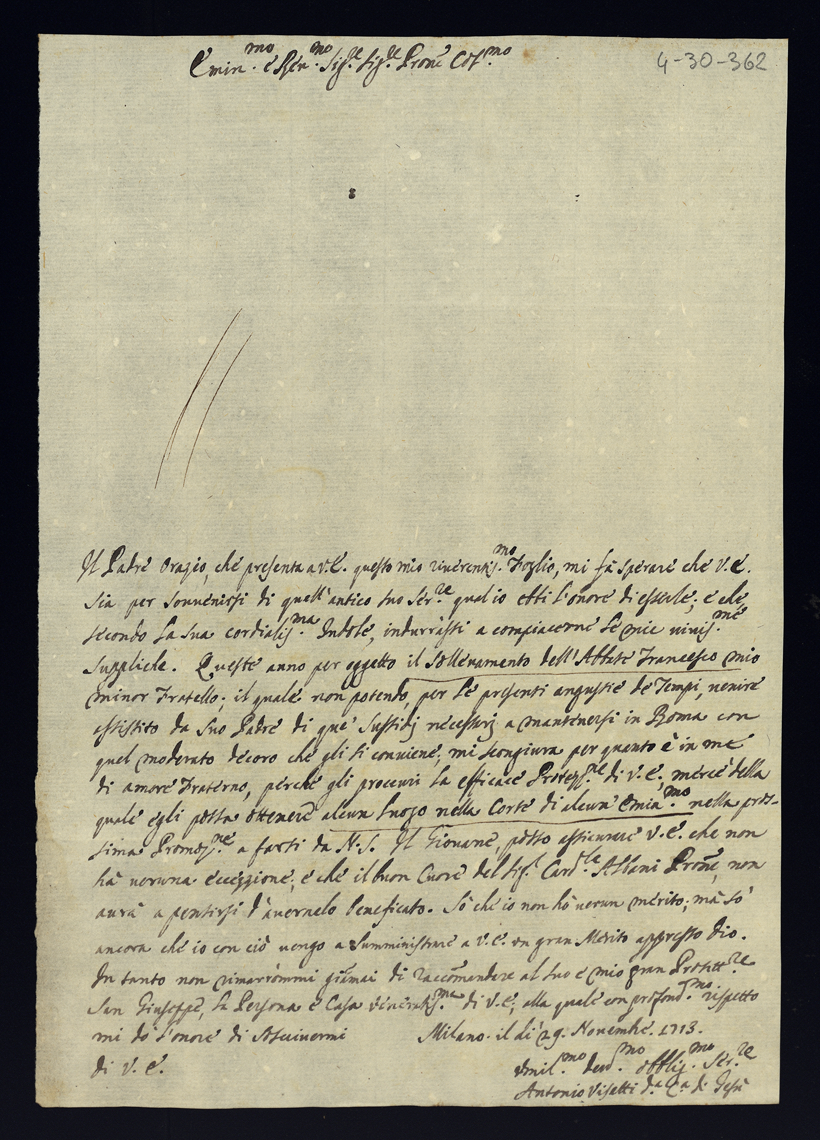 Emin.mo e Rev.mo Sig.re Sig.re Prone Col.mo
4-30-362
Il Padre Orazio, che presenta a V.E. questo mio riverentis.mo Foglio, mi fà sperare che V.E.
sia per souuenirsi di quell'antico suo Ser.re qual io ebbi l'onore di esserle; e che,
secondo la sua cordialis.ma Indole, indurrassi a compiacerne le mie uiuis.me
suppliche. Queste anno per oggetto il sollevamento dell'Abbate Francesco mio
minor Fratello; il quale non potendo, per le presenti angustie de' Tempi, uenire
assistito da suo Padre di que' sussidij necessarij a mantenersi in Roma con
quel moderato decoro che gli si conviene, mi scongiura per quanto è in me
di amore Fraterno, perche gli procuri la efficace Protez.ne di V.E. mercè della
quale egli possa ottenere alcun luogo nella Corte di alcun' Emin.mo nella pros-
sima Promoz.ne a farsi da N.S. Il Giovane, posso assicurare V.E. che non
hà veruna eccezzione, e che il buon Cuore del Sig.r Card.le Albani Prone, non
aurà a pentirsi d'auernelo beneficato. Sò che io non hò uerun merito; mà sò
ancora che io con ciò uengo a sumministtrare a V.E. un gran Merito appresso Dio.
In tanto non rimarrommi giamai di raccomandare al suo e mio gran Protett.re
San Giuseppe, la Persona e Casa veneratis.ma di V.E., alla quale con profond.mo rispetto
mi dò l'onore di Ascrivermi Milano. il dì 29. Novembre. 1713.
di V.E.
Vmil.mo deu.mo obblig.mo Ser.re
Antonio Visetti d.a C.a di Gesù